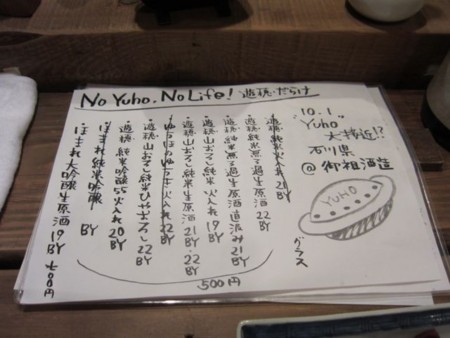 No Yuho. No Life! 遊穂だらけ
10.1
"Yuho
大接近!?"
石川県
@御祖酒造
YUHO
グラス
・遊穂 純米 火入れ 21BY
・遊穂 純米 無ろ過生原酒 22BY
・遊穂 純米 無ろ過生原酒 直汲み 21BY
・遊穂 山おろし純米 火入れ 19BY
・遊穂 山おろし純米 無ろ過生原酒 21.22BY
・ゆうほのゆうき 火入れ 22BY
・遊穂 山おろし純米 ひやおろし 22BY
・遊穂 純米吟醸55 火入れ 20BY
・ほまれ 純米吟醸 BY
・ほまれ 大吟醸 生原酒 19BY 700円
500円